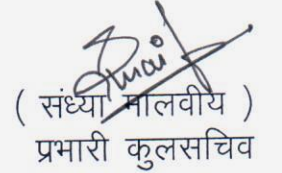 ( संध्या मालवीय )
प्रभारी कुलसचिव